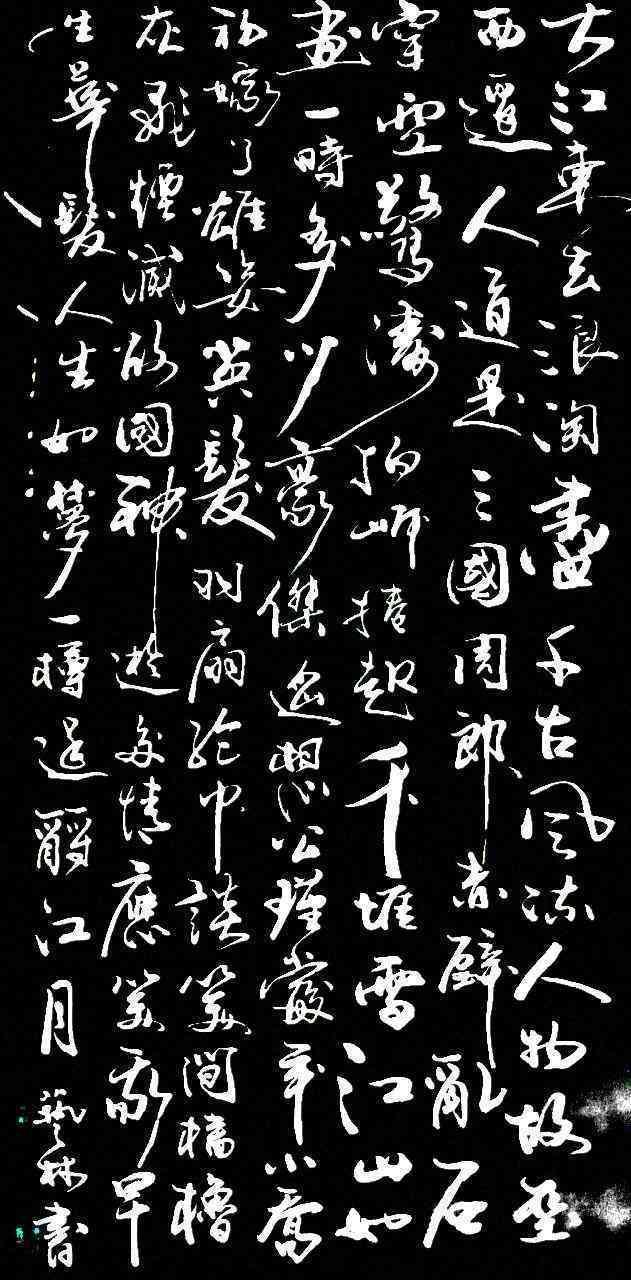 大江東去浪淘盡千古風流人物故垒
西邊人道是三國周郎赤壁亂石
穿空驚濤拍岸捲起千堆雪江山如
畫一時多少豪傑遙想公瑾當年小喬
初嫁了雄姿英髮羽扇綸巾談笑間檣櫓
灰飛煙滅故國神遊多情應笑我早
生華髮人生如夢一樽還酹江月藝林書